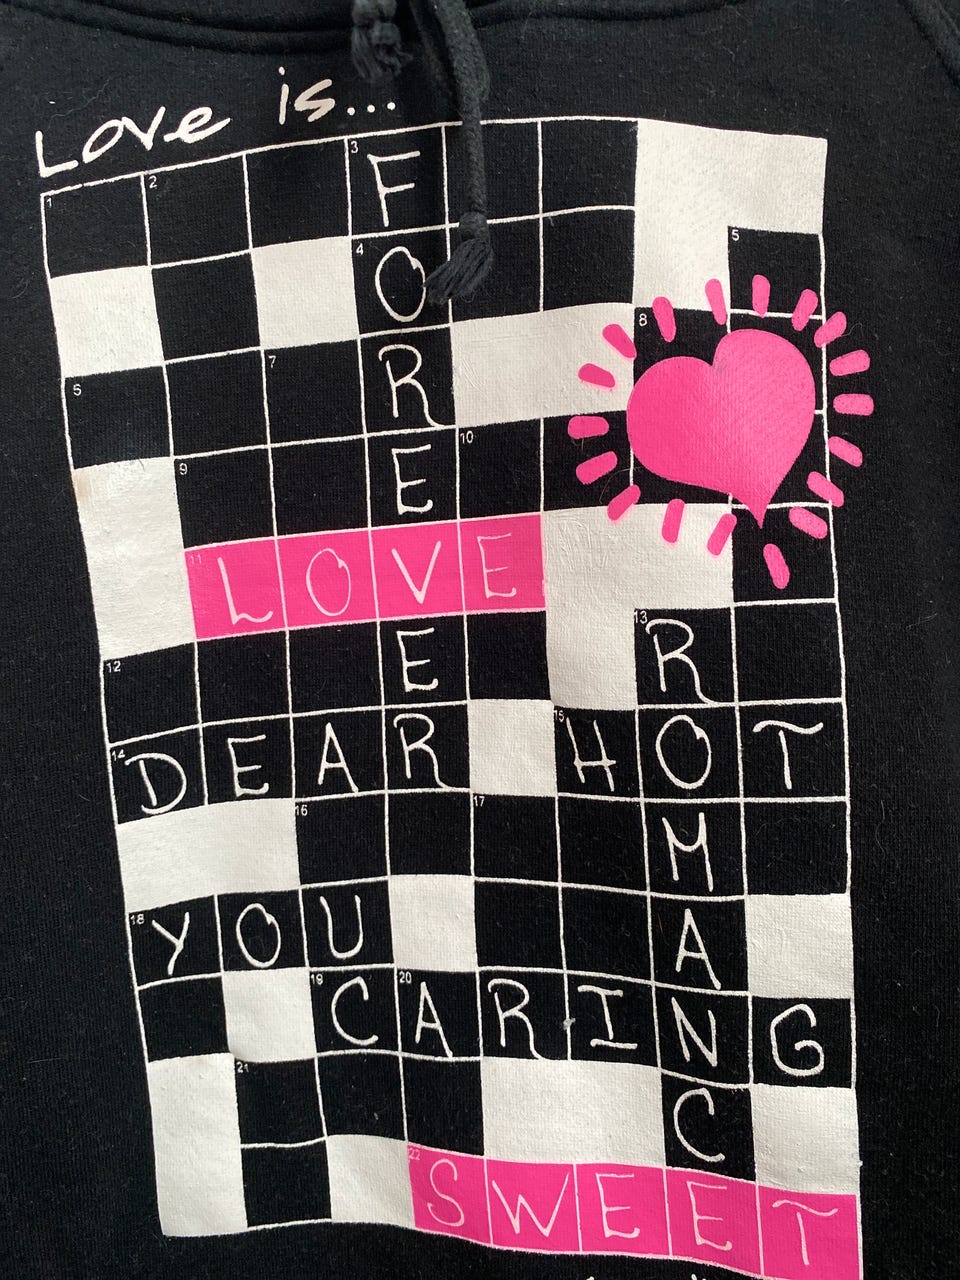 Love is...
1 2 3
FOREVER
4 5
5 7 8
9 10
11 LOVE
12 13
ROMANCE
14 DEAR 15 HOT
16 17
18 YOU
19 20 CARING
21
22 SWEET